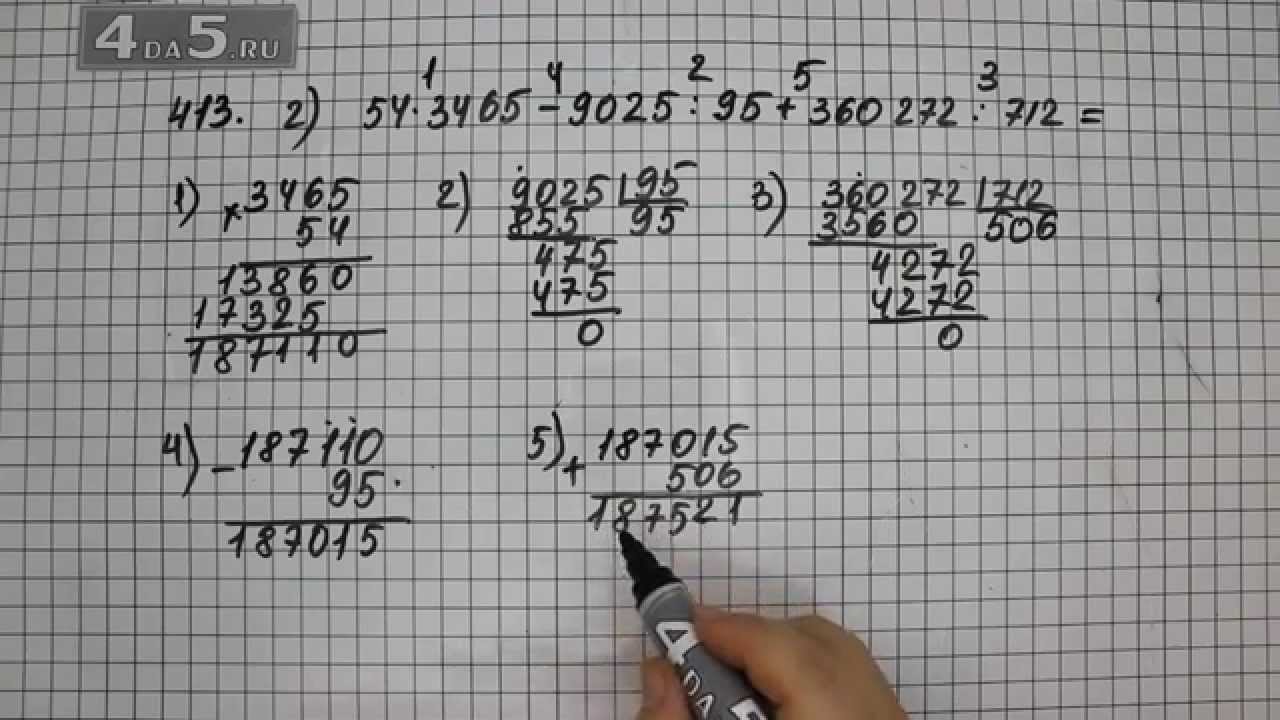 4DA5.RU
1 4 2 5 3
413. 2) 54·3465-9025:95+360 272:712=
1) ×3465
54
13860
17325
187110
2) 9025 95
855 95
475
475
0
3) 360272 712
3560 506
4272
4272
0
4) -187110
95
187015
5) +187015
506
187521
4DA5